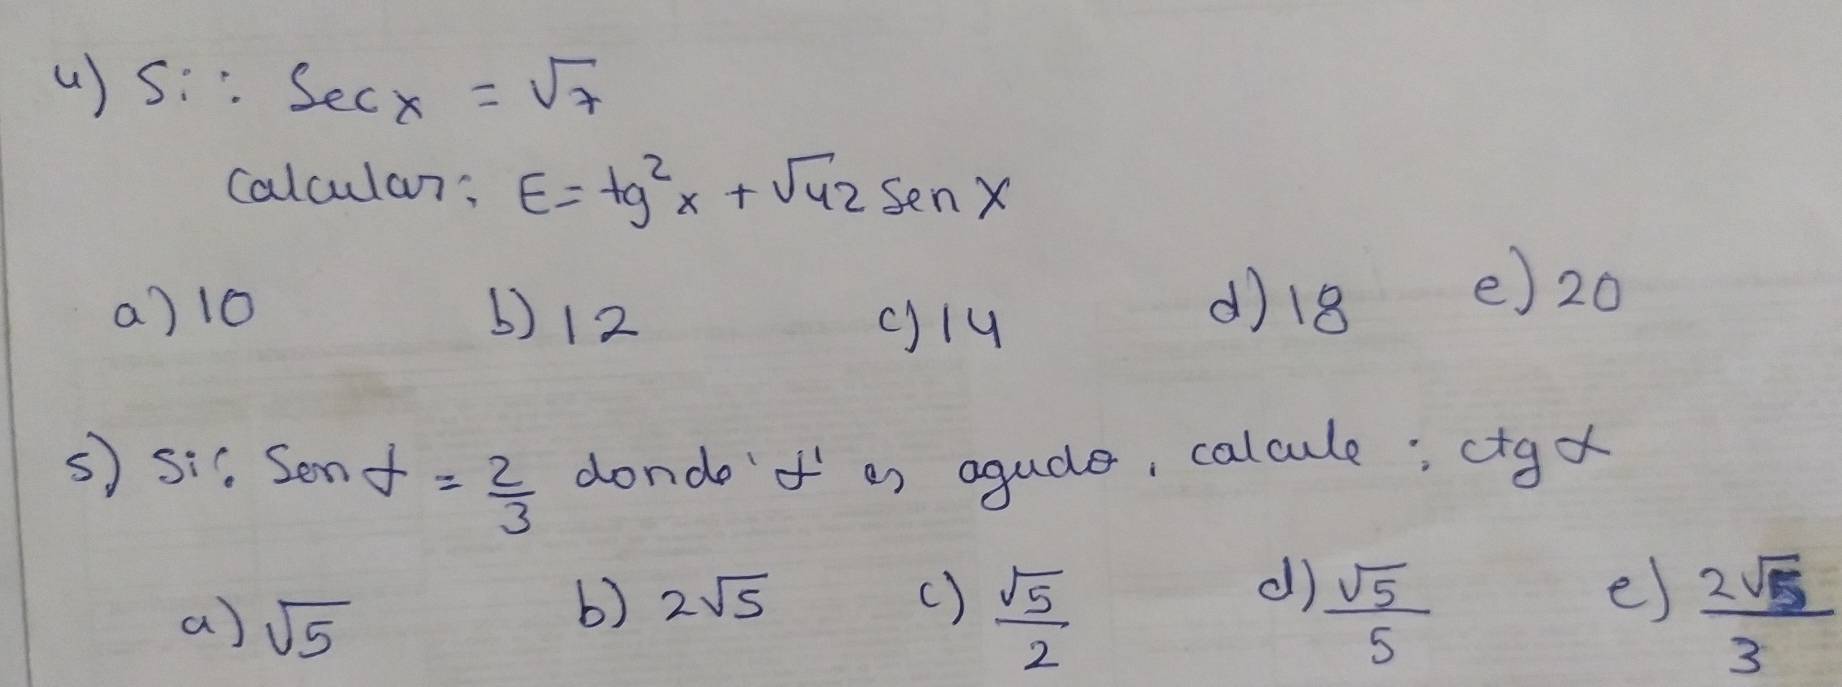 4) Si: Sec x = √7
Calcular: E = tg²x + √42 Sen X
a) 10 b) 12 c) 14 d) 18 e) 20
5) Si: Sen α = 2/3 donde 'α' es agudo, calcule: ctg α
a) √5 b) 2√5 c) √5/2 d) √5/5 e) 2√5/3